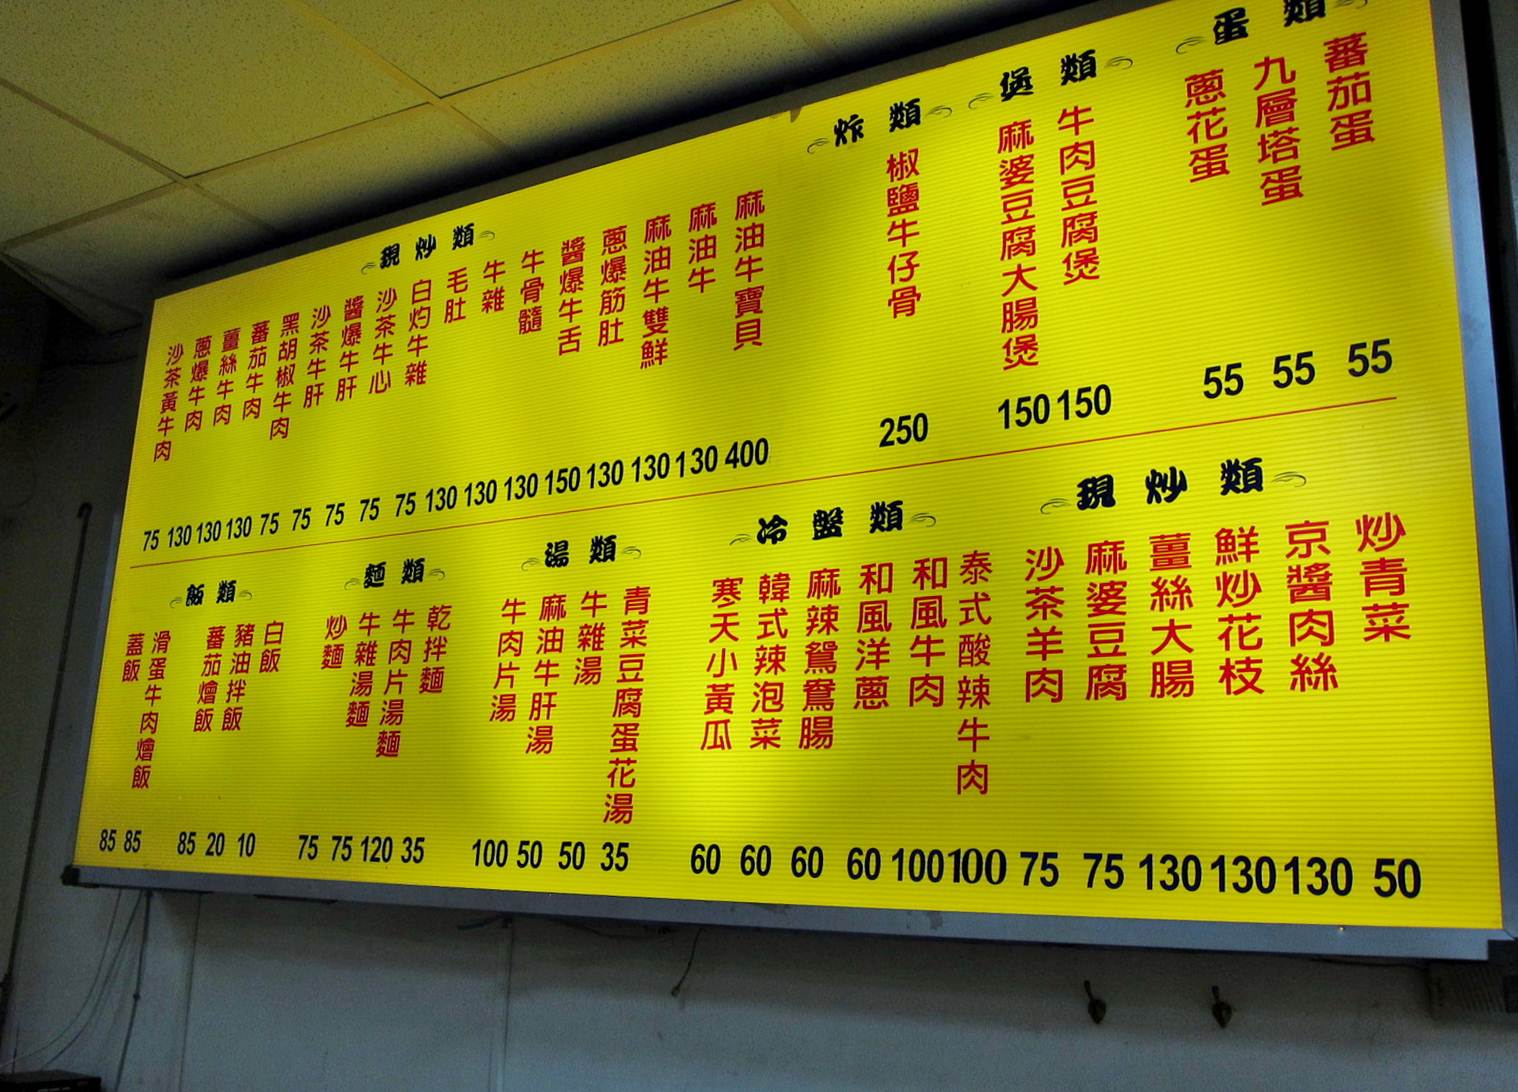 現炒類
沙茶黃牛肉
蔥爆牛肉
薑絲牛肉
蕃茄牛肉
黑胡椒牛肉
沙茶牛肝
醬爆牛肝
沙茶牛心
白灼牛雜
毛肚
牛雜
牛骨髓
醬爆牛舌
蔥爆筋肚
麻油牛雙鮮
麻油牛
麻油牛寶貝
75 130 130 130 75 75 75 75 75 130 130 130 150 130 130 130 400
炸類
椒鹽牛仔骨
250
煲類
麻婆豆腐大腸煲
牛肉豆腐煲
150 150
蛋類
蔥花蛋
九層塔蛋
蕃茄蛋
55 55 55
飯類
蓋飯
滑蛋牛肉燴飯
蕃茄燴飯
豬油拌飯
白飯
85 85 85 20 10
麵類
炒麵
牛雜湯麵
牛肉片湯麵
乾拌麵
75 75 120 35
湯類
牛肉片湯
麻油牛肝湯
牛雜湯
青菜豆腐蛋花湯
100 50 50 35
冷盤類
寒天小黃瓜
韓式辣泡菜
麻辣鴛鴦腸
和風洋蔥
和風牛肉
泰式酸辣牛肉
60 60 60 60 100 100
現炒類
沙茶羊肉
麻婆豆腐
薑絲大腸
鮮炒花枝
京醬肉絲
炒青菜
75 75 130 130 130 50